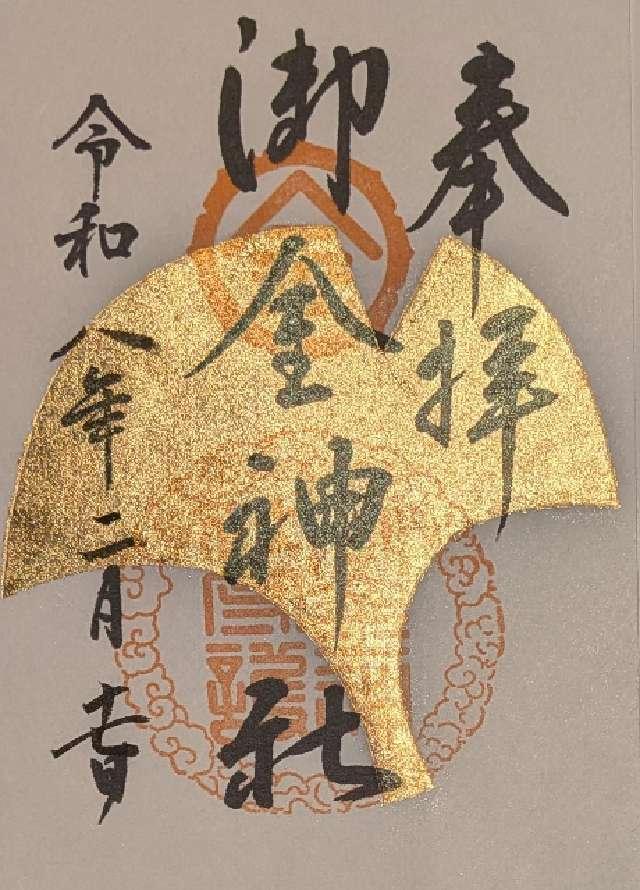 奉拝
御金神社
令和八年二月